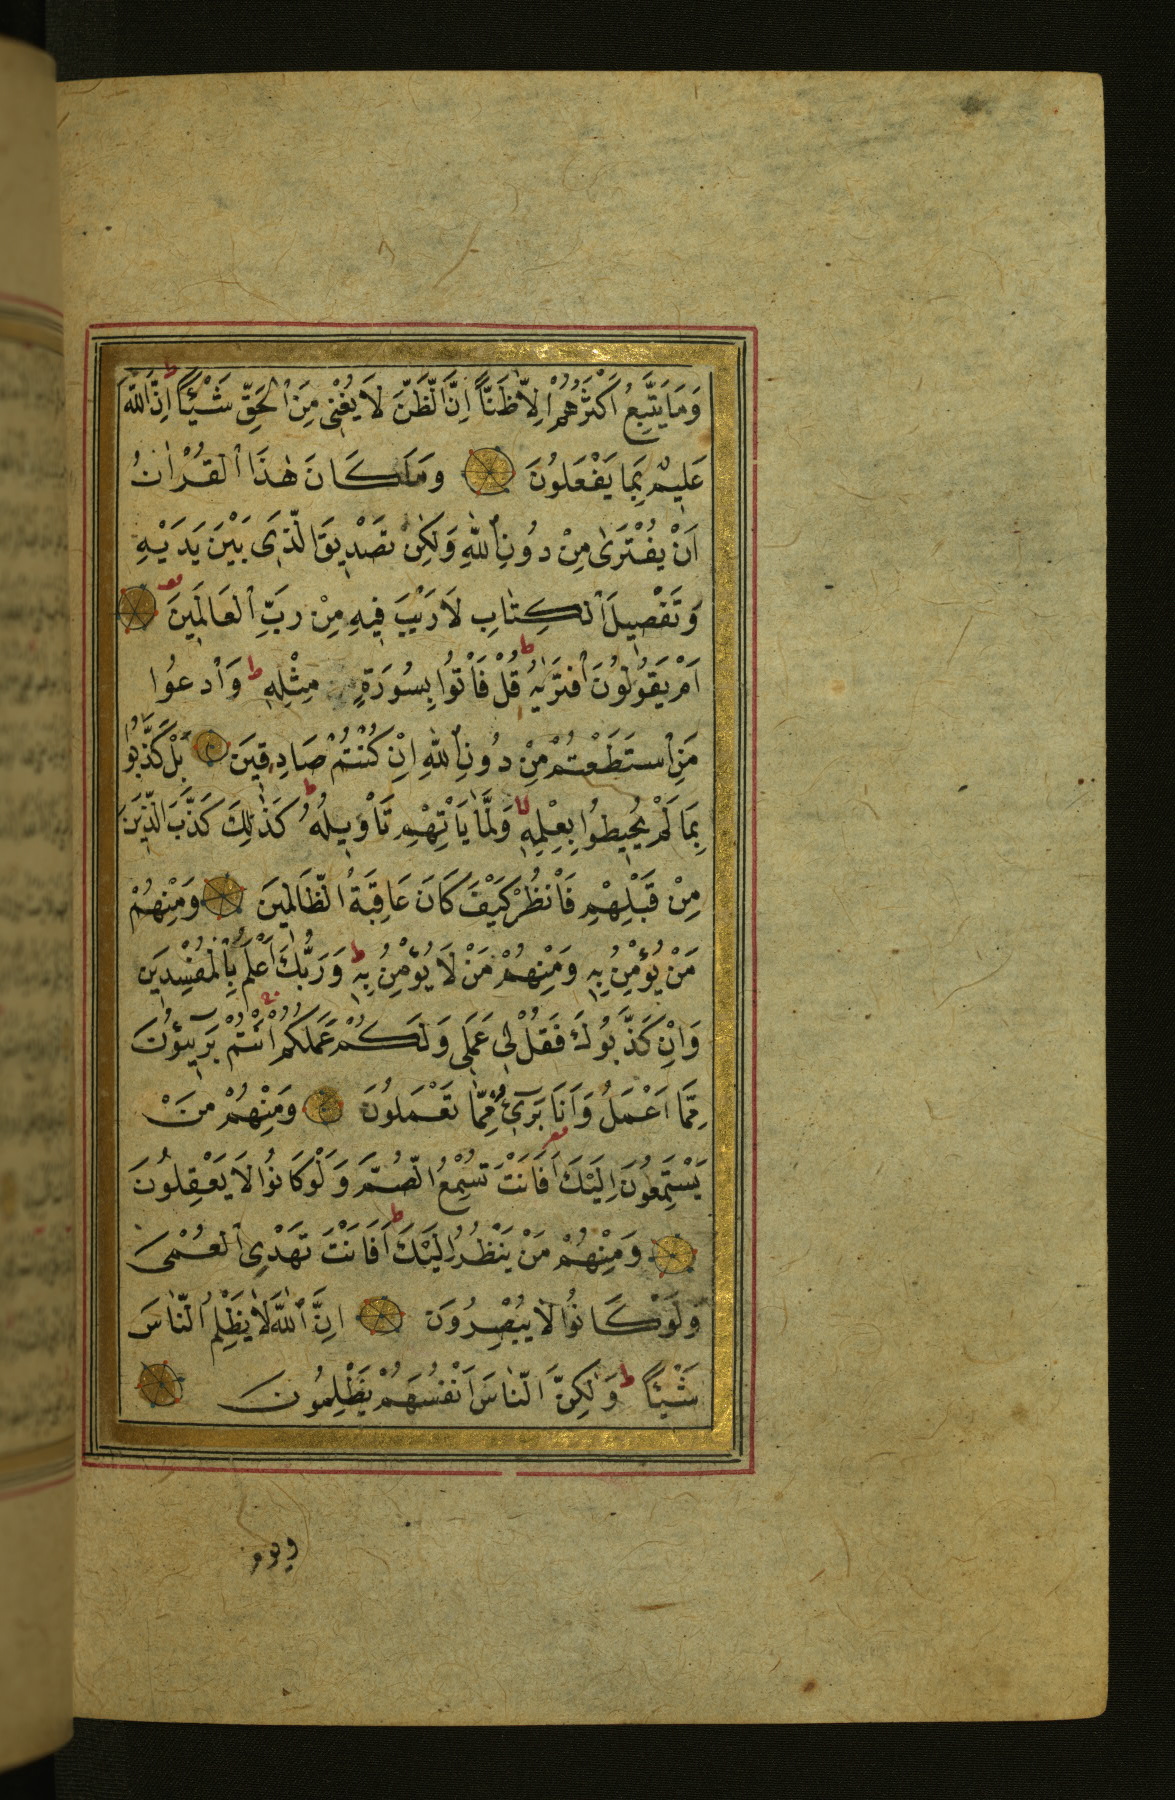 وَمَا يَتَّبِعُ اَكْثَرُهُمْ اِلَّا ظَنًّا اِنَّ الظَّنَّ لَا يُغْنِى مِنَ الْحَقِّ شَيْئًا ط اِنَّ اللّٰهَ
عَلِيمٌ بِمَا يَفْعَلُونَ وَمَا كَانَ هٰذَا الْقُرْاٰنُ
اَنْ يُفْتَرٰى مِنْ دُونِ اللّٰهِ وَلٰكِنْ تَصْدِيقَ الَّذِى بَيْنَ يَدَيْهِ
وَتَفْصِيلَ الْكِتَابِ لَا رَيْبَ فِيهِ مِنْ رَبِّ الْعَالَمِينَ
اَمْ يَقُولُونَ افْتَرٰيهُ ط قُلْ فَأْتُوا بِسُورَةٍ مِثْلِهِ ط وَادْعُوا
مَنِ اسْتَطَعْتُمْ مِنْ دُونِ اللّٰهِ اِنْ كُنْتُمْ صَادِقِينَ بَلْ كَذَّبُوا
بِمَا لَمْ يُحِيطُوا بِعِلْمِهِ لا وَلَمَّا يَأْتِهِمْ تَأْوِيلُهُ ط كَذٰلِكَ كَذَّبَ الَّذِينَ
مِنْ قَبْلِهِمْ فَانْظُرْ كَيْفَ كَانَ عَاقِبَةُ الظَّالِمِينَ وَمِنْهُمْ
مَنْ يُؤْمِنُ بِهِ وَمِنْهُمْ مَنْ لَا يُؤْمِنُ بِهِ ط وَرَبُّكَ اَعْلَمُ بِالْمُفْسِدِينَ
وَاِنْ كَذَّبُوكَ فَقُلْ لِى عَمَلِى وَلَكُمْ عَمَلُكُمْ اَنْتُمْ بَرِيئُونَ
مِمَّا اَعْمَلُ وَاَنَا بَرِىءٌ مِمَّا تَعْمَلُونَ وَمِنْهُمْ مَنْ
يَسْتَمِعُونَ اِلَيْكَ اَفَاَنْتَ تُسْمِعُ الصُّمَّ وَلَوْ كَانُوا لَا يَعْقِلُونَ
وَمِنْهُمْ مَنْ يَنْظُرُ اِلَيْكَ ط اَفَاَنْتَ تَهْدِى الْعُمْىَ
وَلَوْ كَانُوا لَا يُبْصِرُونَ اِنَّ اللّٰهَ لَا يَظْلِمُ النَّاسَ
شَيْئًا ط وَلٰكِنَّ النَّاسَ اَنْفُسَهُمْ يَظْلِمُونَ
ويوم